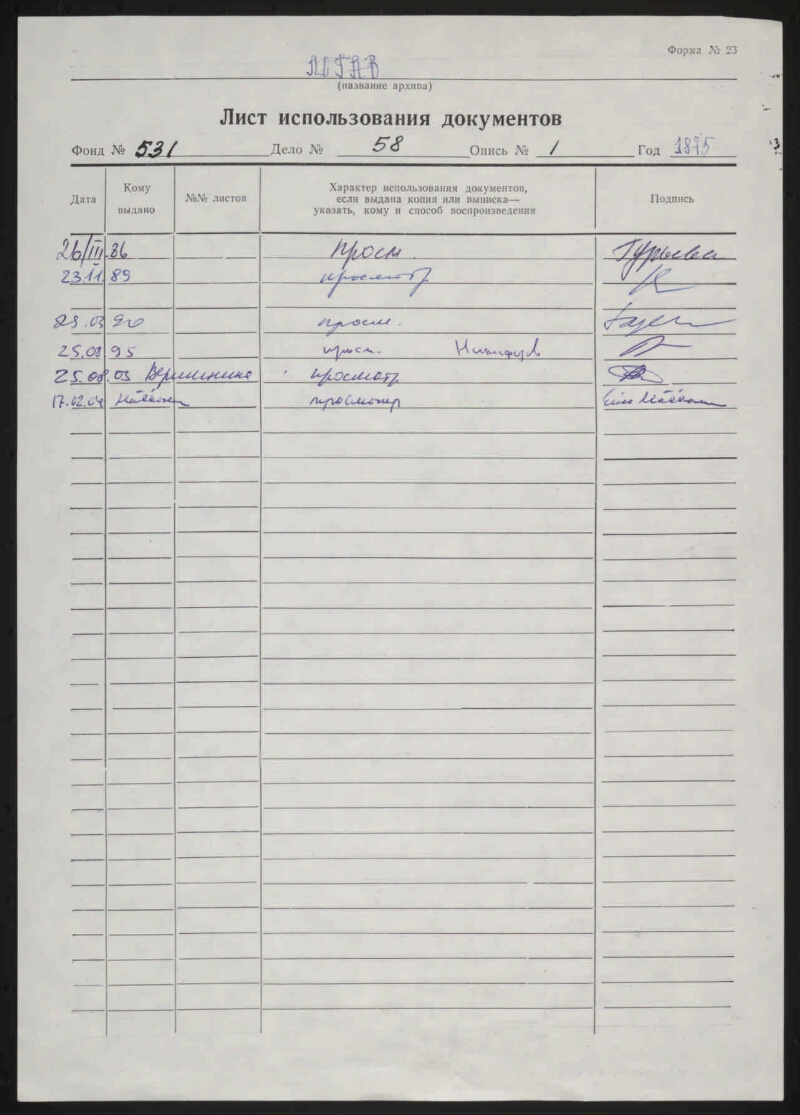 Форма № 23
ЛГАВ
(название архива)
Лист использования документов
Фонд № 531 Дело № 58 Опись № 1 Год 1875
Дата Кому выдано №№ листов Характер использования документов, если выдана копия или выписка— указать, кому и способ воспроизведения Подпись
26/III 86 Просм. Гурьева
23.11. 89 просмотр
90 просм.
25.08 95 просм. Никифоров
25.08.03 просмотр
17.02.04 просмотр